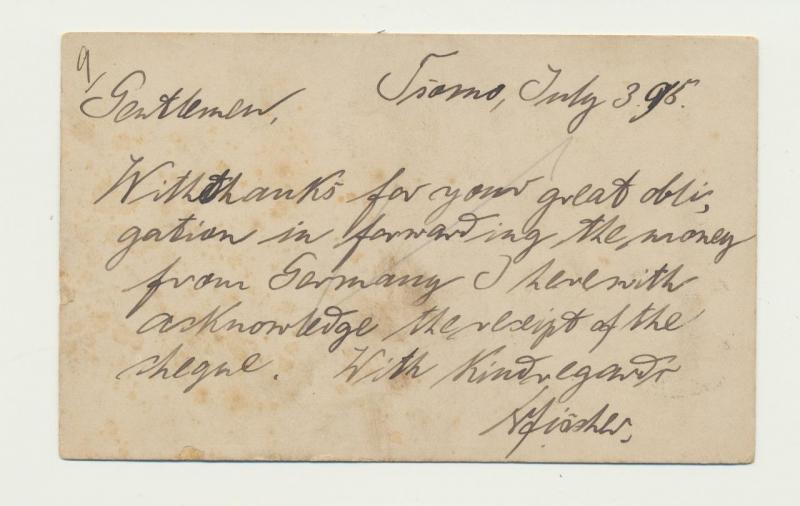 9/
Tsomo, July 3. 95.
Gentlemen,
With thanks for your great obli,
gation in forwarding the money
from Germany I herewith
acknowledge the receipt of the
cheque. With kind regards
Fischer,